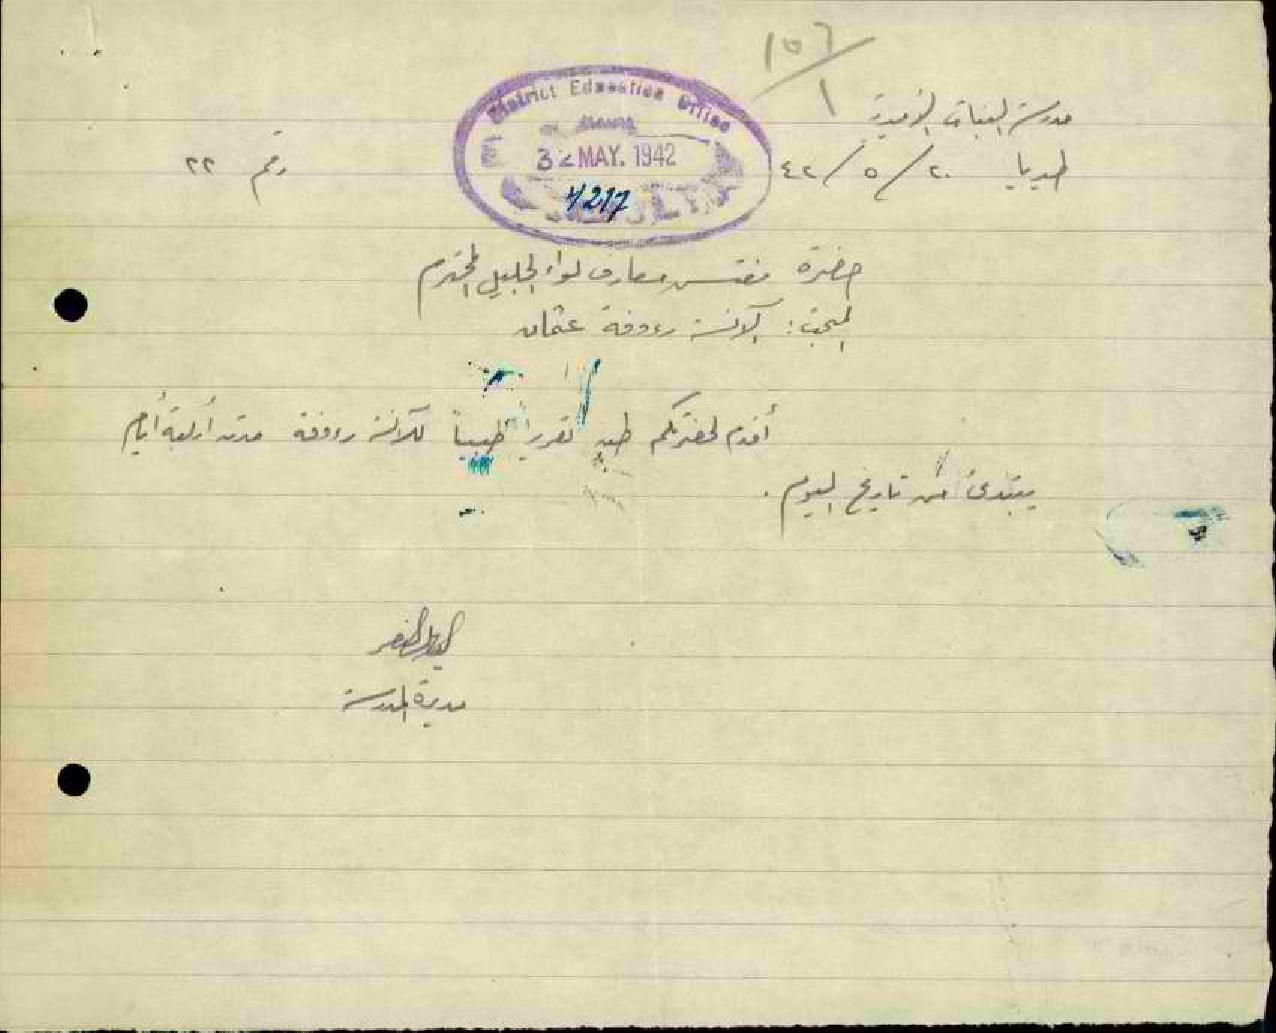 ١٥٦/١
مدرسة البنات الأميرية
طبريا ٢٠/٥/٤٢
رقم ٢٢
District Education Office
MAY. 1942
4217
حضرة مفتش معارف لواء الجليل المحترم
المبحث: الآنسة رءوفة عثمان
أقدم لحضرتكم طيه تقريرا طبيباً للآنسة رءوفة مدته أربعة أيام
يبتدئ من تاريخ اليوم.
مديرة المدرسة